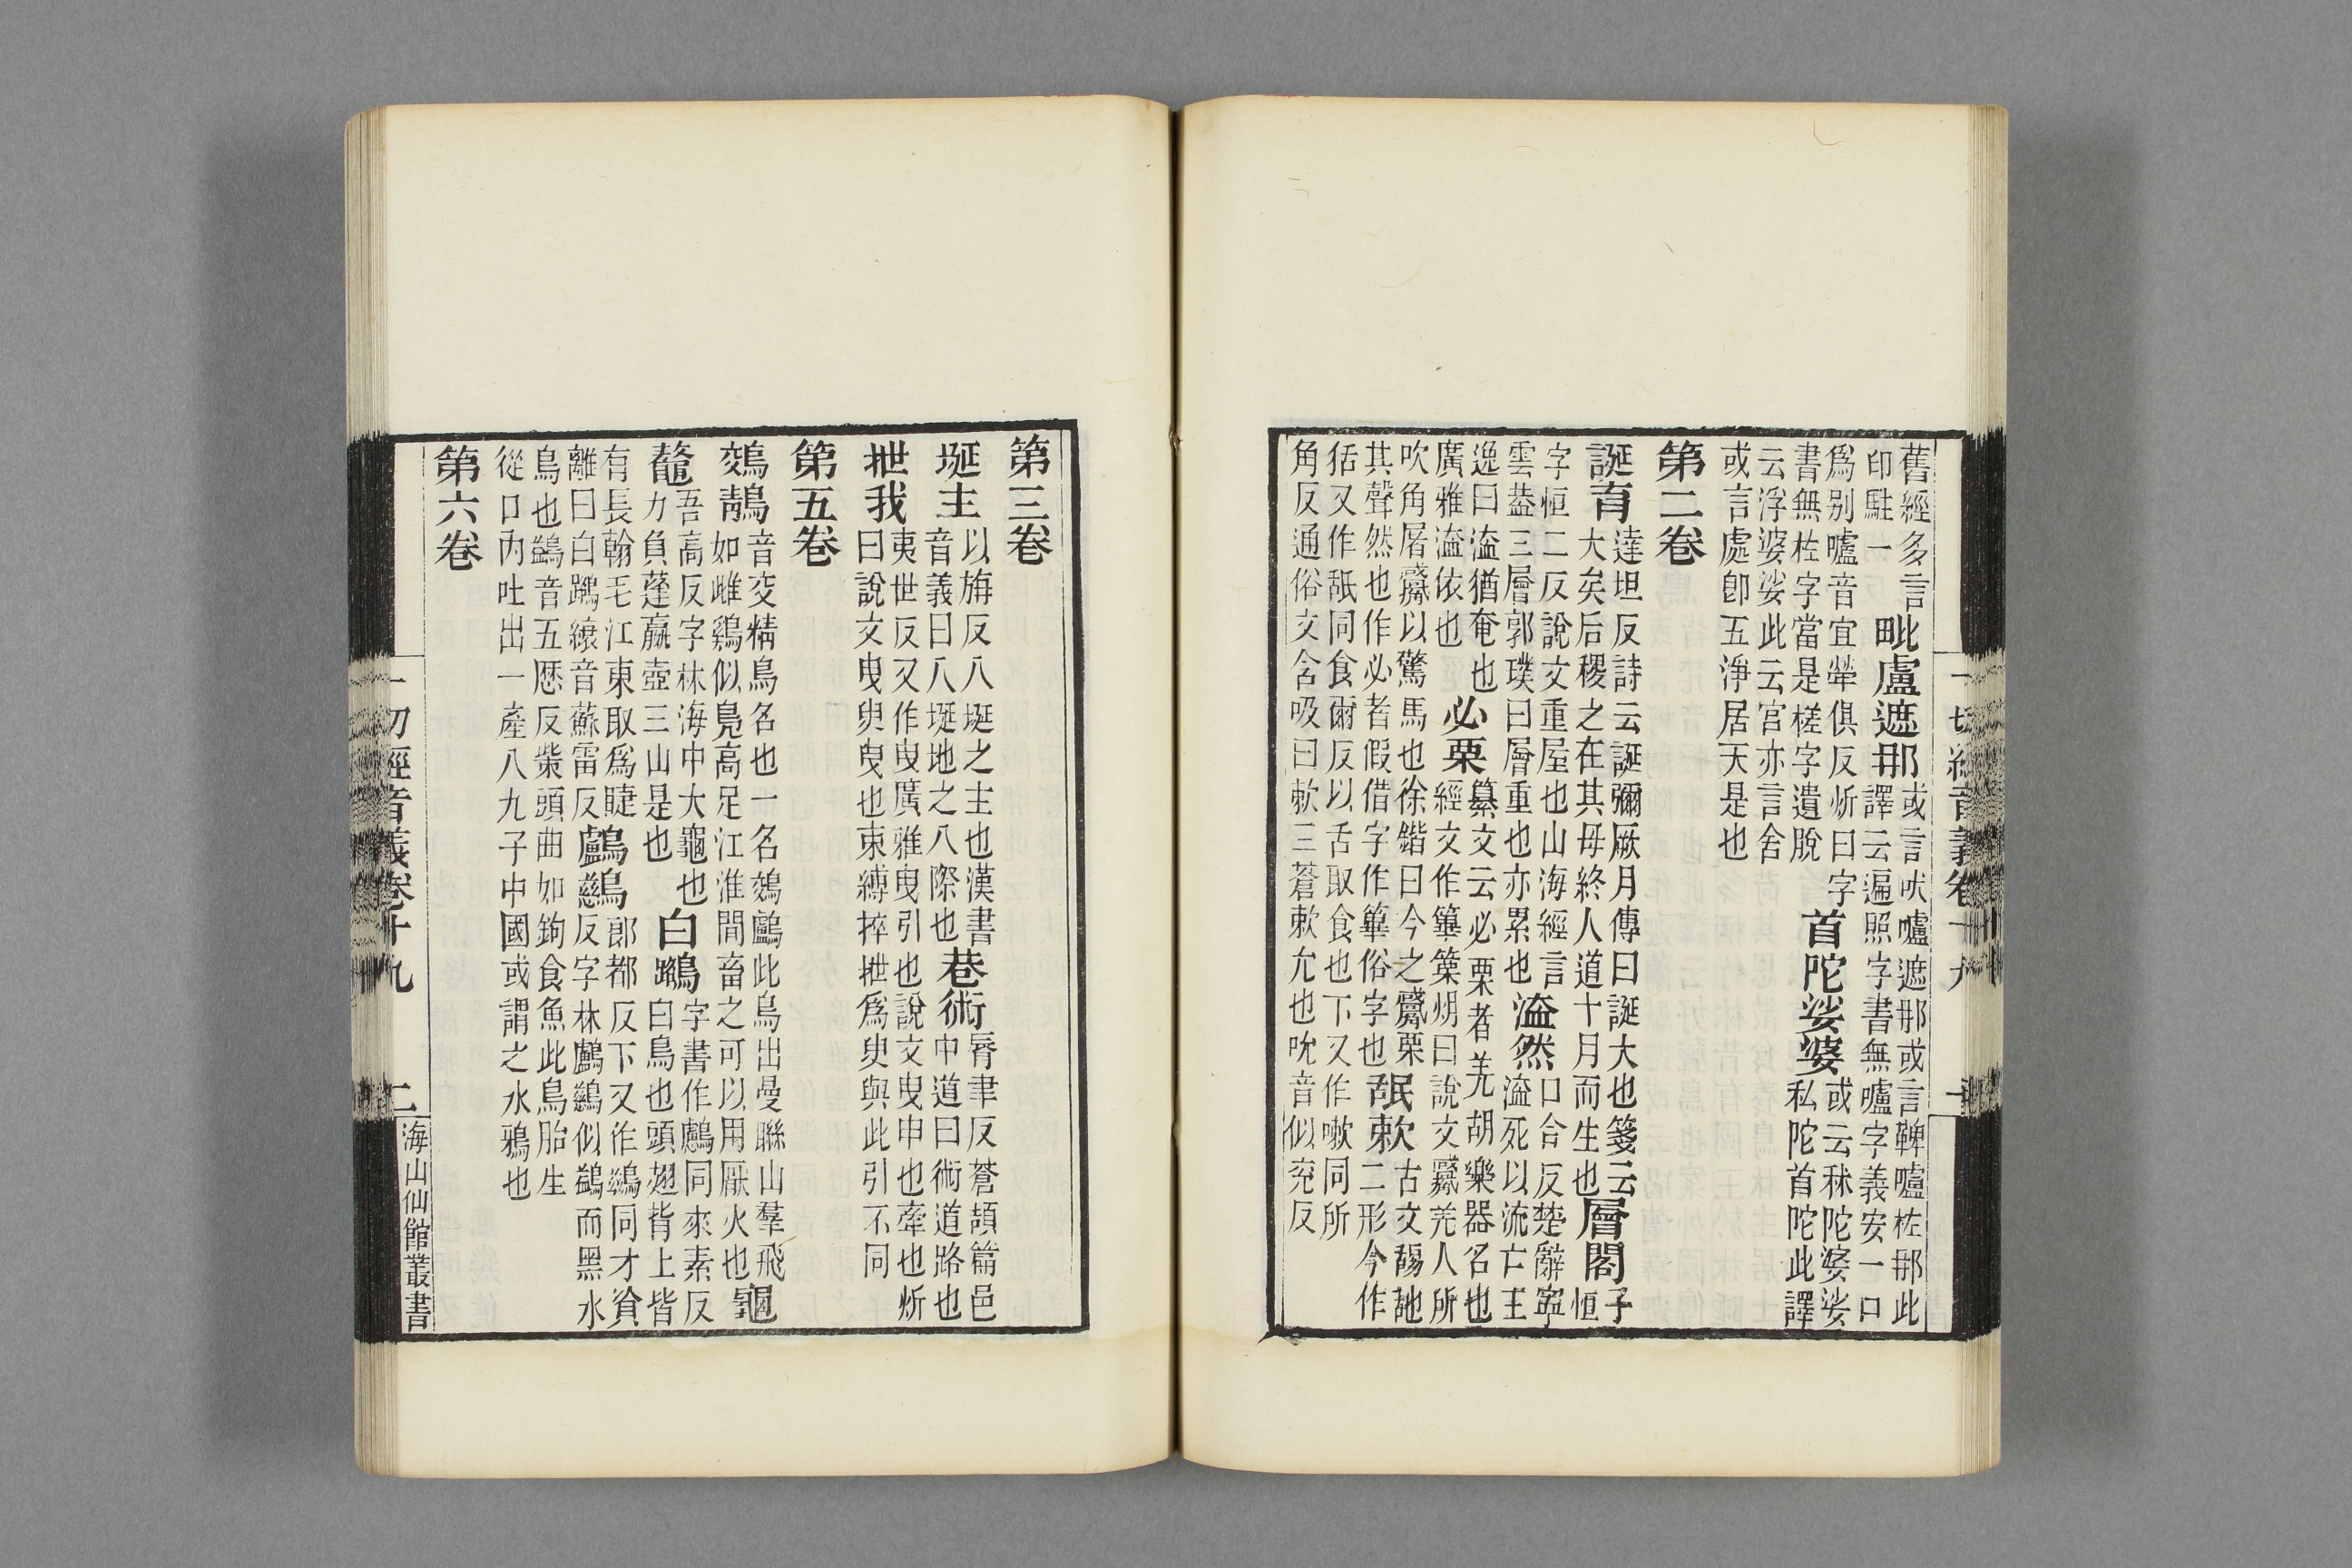 舊經多言毗盧遮那或言吠嚧遮那或言鞞嚧柘那此
印駐一譯云遍照字書無嚧字義安一口
爲别嚧音宜犖俱反炘曰字首陀娑婆或云秝陀婆娑
書無柘字當是槎字遺脫私陀首陀此譯
云浮婆娑此云宮亦言舍
或言處卽五淨居天是也
第二卷
誕育達坦反詩云誕彌厥月傳曰誕大也箋云
大矣后稷之在其母終人道十月而生也層閣子恒
字恒二反說文重屋也山海經言
雲葢三層郭璞曰層重也亦累也溘然口合反楚辭寧
溘死以流亡王
逸曰溘猶奄也
廣雅溘依也必栗纂文云必栗者羌胡樂器名也
經文作篳篥炘曰說文觱羌人所
吹角屠觱以驚馬也徐鍇曰今之觱栗
其聲然也作必者假借字作篳俗字也䑛欶古文䑛訑
二形今作
括又作舐同食爾反以舌取食也下又作嗽同所
角反通俗文含吸曰欶三蒼欶允也吮音似兖反
一切經音義卷十九
第三卷
埏主以旃反八埏之主也漢書
音義曰八埏地之八際也巷術脣聿反蒼頡篇邑
中道曰術道路也
抴我夷世反又作曳廣雅曳引也說文曳申也牽也炘
曰說文曳臾曳也束縛捽抴爲臾與此引不同
第五卷
鵁鶄音交精鳥名也一名鵁鸕此鳥出曼聯山羣飛
如雌鷄似鳧高足江淮間畜之可以用厭火也龜
鼇吾高反字林海中大龜也
力負蓬嬴壺三山是也白鷺字書作鸕同來素反
白鳥也頭翅背上皆
有長翰毛江東取爲睫
離曰白鷺縗音蘇雷反鸕鶿郎都反下又作鷀同才資
反字林鸕鷀似鷁而黑水
鳥也鷁音五厯反柴頭曲如鉤食魚此鳥胎生
從口內吐出一產八九子中國或謂之水鴉也
第六卷
一切經音義卷十九
二
海山仙館叢書